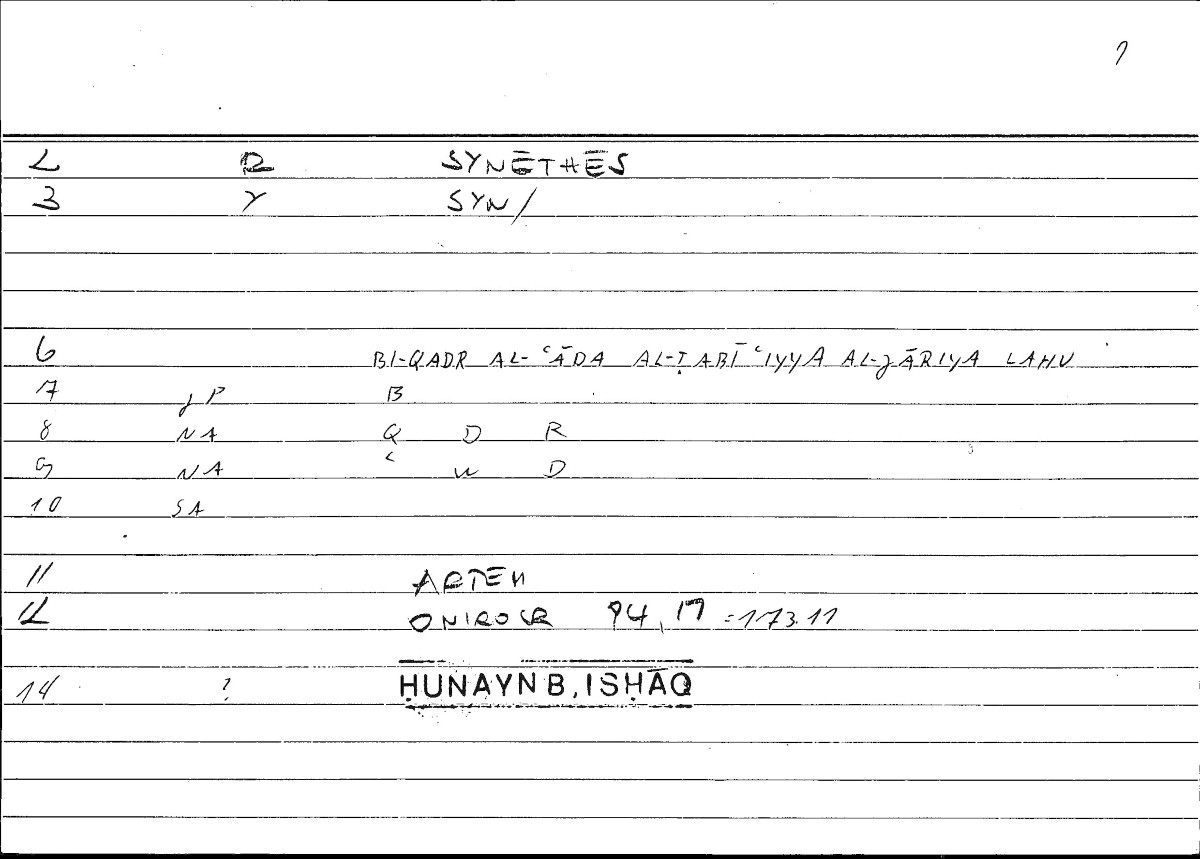 2 R SYNĒTHĒS
3 γ SYN/
6 BI-QADR AL-ʿĀDA AL-ṬABĪʿIYYA AL-ǧĀRIYA LAHU
7 JP B
8 NA Q D R
9 NA ʿ W D
10 SA
11 ARTEM
12 ONIROCR 94,17 =173.11
14 ? ḤUNAYN B. ISḤĀQ